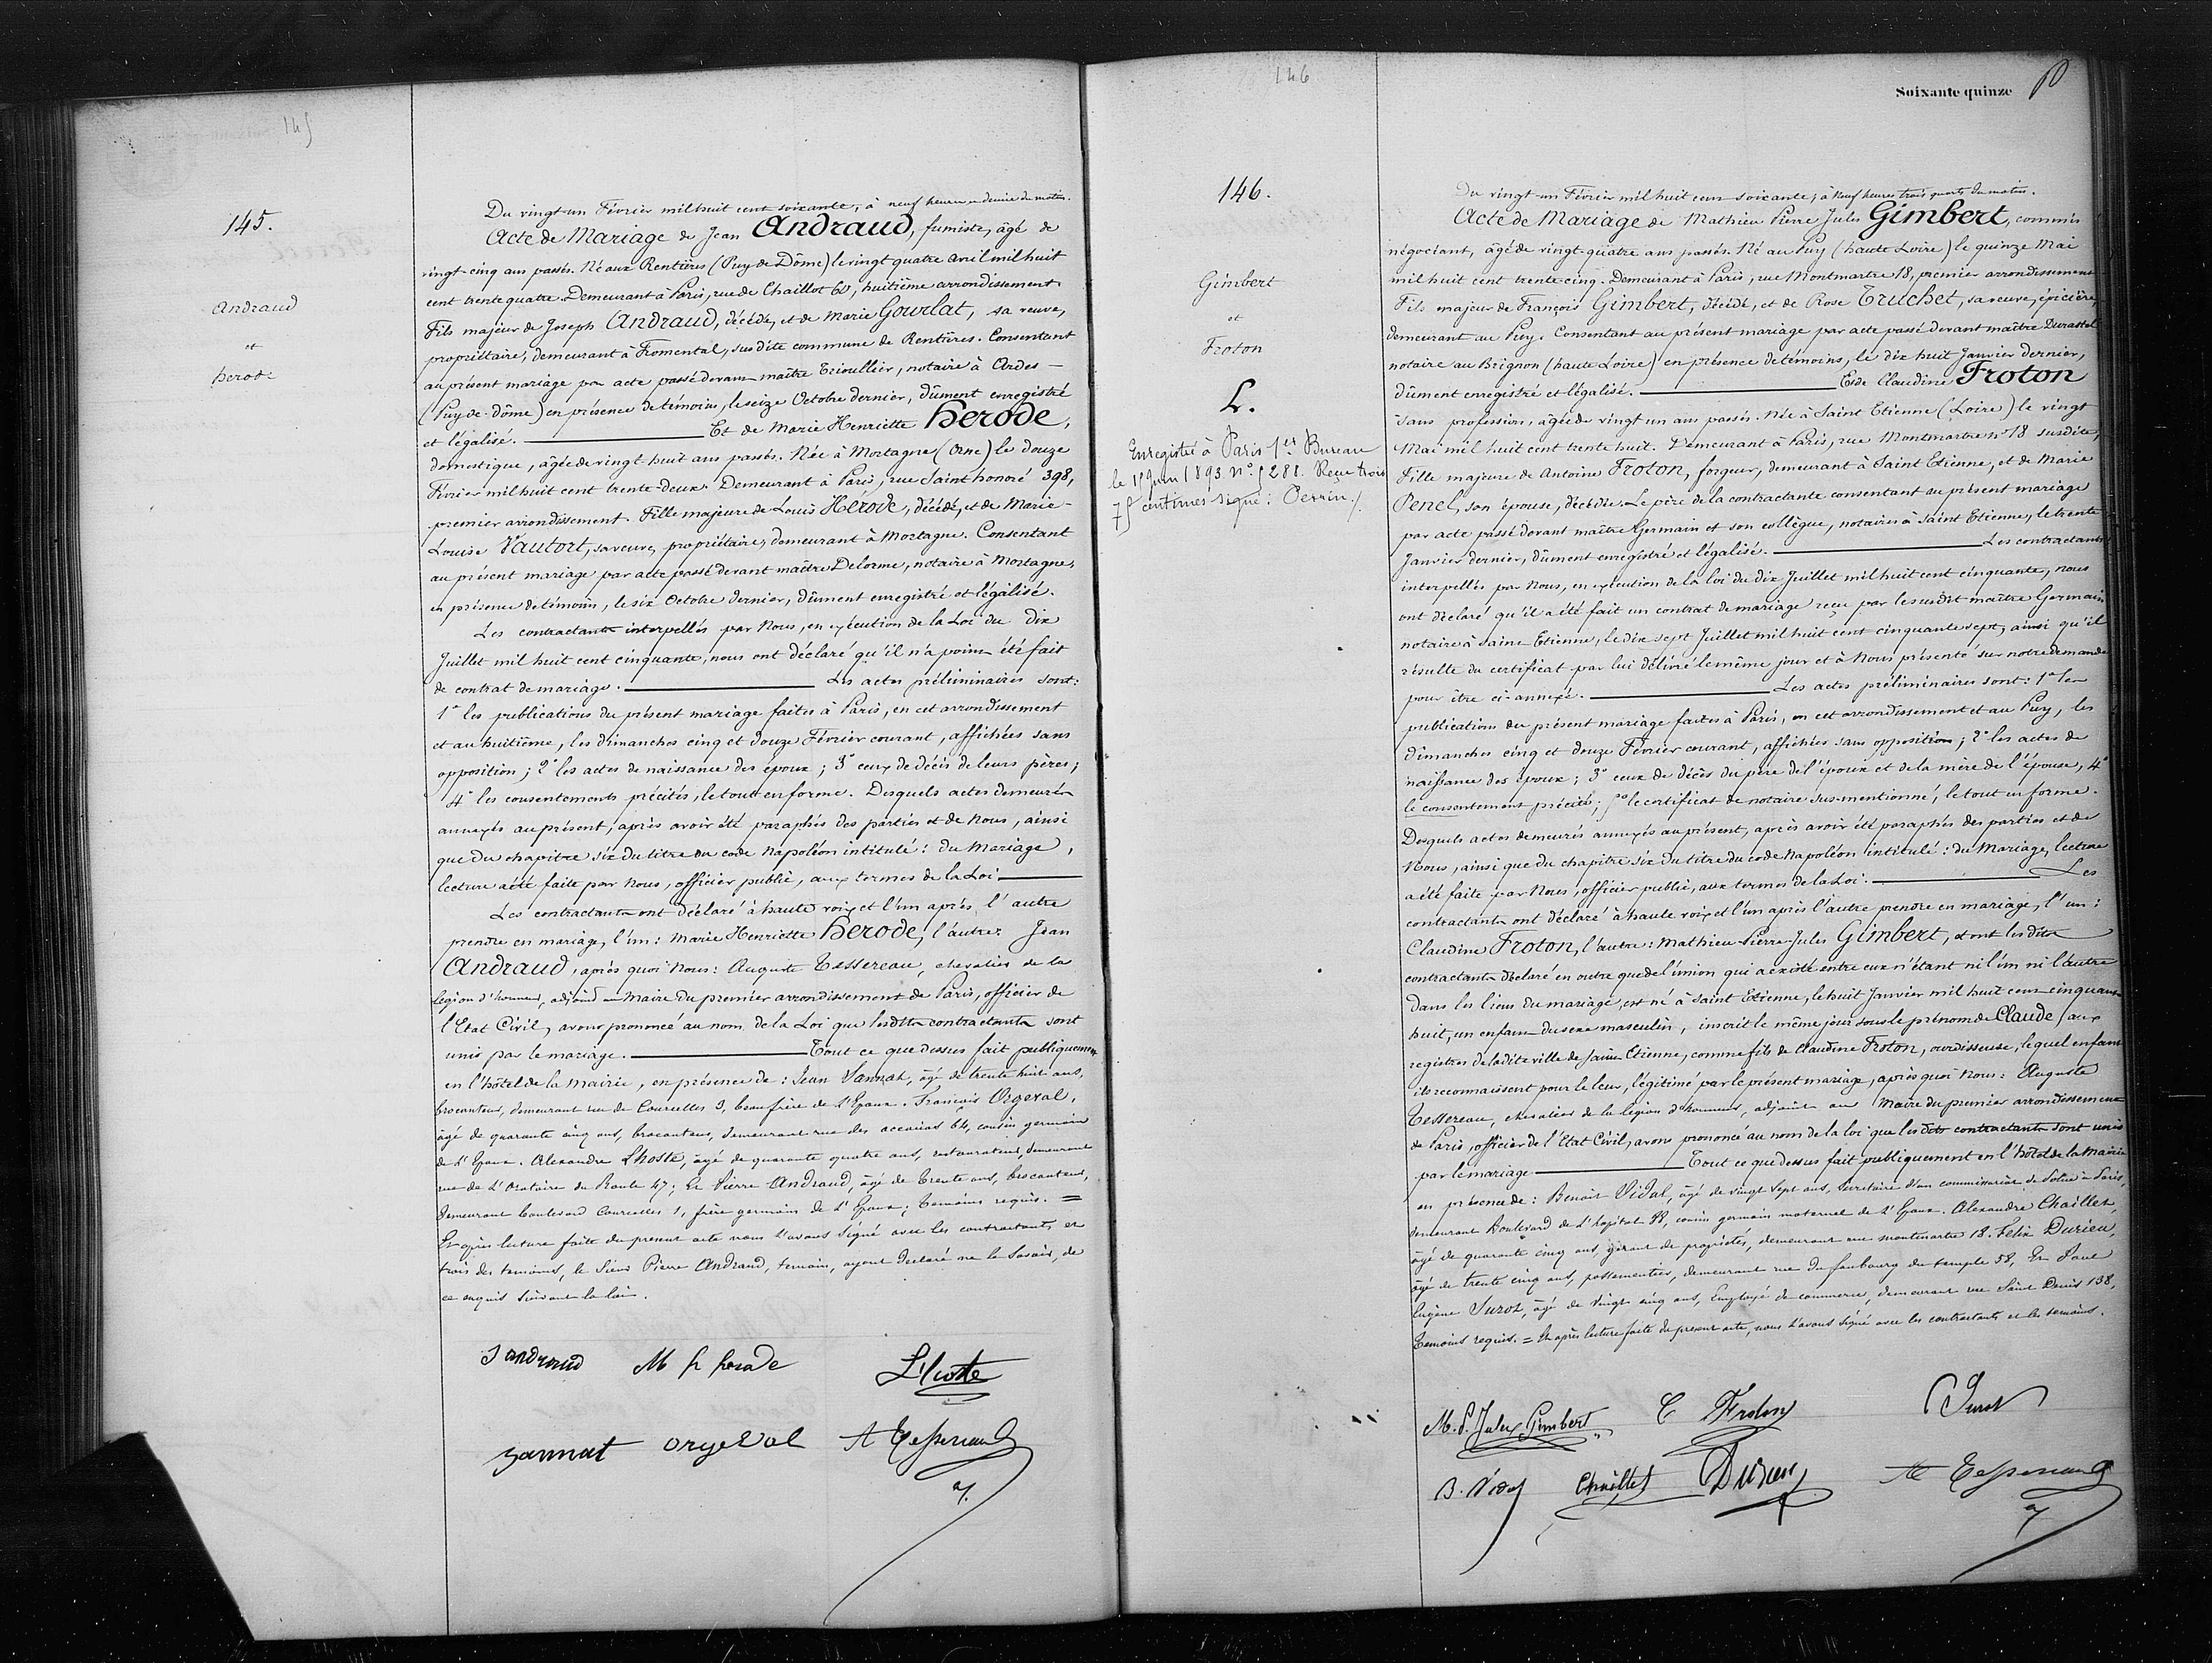 145
145.
Andraud
et
herode
Du vingt-un Février mil huit cent soixante, à neuf heures et demie du matin.
Acte de Mariage de Jean Andraud, fumiste, âgé de
vingt-cinq ans passés. Né aux Rentières (Puy de Dôme) le vingt quatre avril mil huit
cent trente quatre. Demeurant à Paris, rue de Chaillot 60, huitième arrondissement.
Fils majeur de Joseph Andraud, décédé, et de Marie Gourlat, sa veuve,
propriétaire, demeurant à Fromental, susdite commune de Rentières. Consentant
au présent mariage par acte passé devant maître Trioullier, notaire à Ardes —
(Puy-de-Dôme) en présence de témoins, le seize Octobre dernier, dûment enregistré
et légalisé. — Et de Marie Henriette herode,
domestique, âgée de vingt-huit ans passés. Née à Mortagne (Orne) le douze
Février mil huit cent trente-deux. Demeurant à Paris, rue Saint honoré 398,
premier arrondissement. Fille majeure de Louis Hérode, décédé, et de Marie-
Louise Vautort, sa veuve, propriétaire, demeurant à Mortagne. Consentant
au présent mariage par acte passé devant maître Delorme, notaire à Mortagne,
en présence de témoins, le six Octobre dernier, dûment enregistré et légalisé.
Les contractants interpellés par Nous, en exécution de la Loi du dix
Juillet mil huit cent cinquante, nous ont déclaré qu'il n'a point été fait
de contrat de mariage. — Les actes préliminaires sont:
1° les publications du présent mariage faites à Paris, en cet arrondissement
et au huitième, les dimanches cinq et douze Février courant, affichées sans
opposition; 2° les actes de naissance des époux; 3° ceux de décès de leurs pères;
4° les consentements précités, le tout en forme. Desquels actes demeurés
annexés au présent, après avoir été paraphés des parties et de Nous, ainsi
que du chapitre six du titre du code Napoléon intitulé: du Mariage,
lecture a été faite par Nous, officier public, aux termes de la Loi —
Les contractants ont déclaré à haute voix et l'un après l'autre
prendre en mariage, l'un: Marie Henriette herode, l'autre: Jean
Andraud, après quoi Nous: Auguste Tessereau, chevalier de la
Légion d'honneur, adjoint au Maire du premier arrondissement de Paris, officier de
l'Etat Civil, avons prononcé au nom de la Loi que lesdits contractants sont
unis par le mariage. — Tout ce que dessus fait publiquement
en l'hôtel de la mairie, en présence de: Jean Vannat, âgé de trente huit ans,
brocanteur, demeurant rue de Courcelles 3, beau frère de l'Epoux. François Orgeval,
âgé de quarante cinq ans, brocanteur, demeurant rue des accacias 64, cousin germain
de l'Epoux. Alexandre Lhoste, âgé de quarante quatre ans, restaurateur, demeurant
rue de l'Oratoire du Roule 47; Et Pierre Andraud, âgé de trente ans, brocanteur,
demeurant boulevard Courcelles 1, frère germain de l'Epoux; témoins requis. =
Et après lecture faite du présent acte nous l'avons signé avec les contractants et
trois des témoins, le sieur Pierre Andraud, témoin, ayant déclaré ne le savoir, de
ce enquis suivant la loi.
J andraud M h herode L'hoste
Zannat orgeval A Tessereau
146
Soixante quinze
146.
Gimbert
et
Froton
L.
Enregistré à Paris 1er Bureau
le 1er Juin 1893 N° 5288. Reçu trois
75 centimes signé: Perrin./.
Du vingt-un Février mil huit cent soixante, à Neuf heures trois quarts du matin.
Acte de Mariage de Mathieu Pierre Jules Gimbert, commis
négociant, âgé de vingt-quatre ans passés. Né au Puy (haute Loire) le quinze Mai
mil huit cent trente-cinq. Demeurant à Paris, rue Montmartre 18, premier arrondissement
Fils majeur de François Gimbert, décédé, et de Rose Truchet, sa veuve, épicière,
demeurant au Puy. Consentant au présent mariage par acte passé devant maître Durastel
notaire au Brignon (haute Loire) en présence de témoins, le dix huit Janvier dernier,
dûment enregistré et légalisé. — Et de Claudine Froton
sans profession, âgée de vingt un ans passés. Née à Saint Etienne (Loire) le vingt
Mai mil huit cent trente huit. Demeurant à Paris, rue Montmartre N° 18 susdite,
Fille majeure de Antoine Froton, forgeur, demeurant à Saint Etienne, et de Marie
Penel, son épouse, décédée. Le père de la contractante consentant au présent mariage
par acte passé devant maître Germain et son collègue, notaires à Saint Etienne, le trente
Janvier dernier, dûment enregistré et légalisé. — Les contractants
interpellés par Nous, en exécution de la loi du dix Juillet mil huit cent cinquante, nous
ont déclaré qu'il a été fait un contrat de mariage reçu par le susdit maître Germain
notaire à Saint Etienne, le dix sept Juillet mil huit cent cinquante sept, ainsi qu'il
résulte du certificat par lui délivré le même jour et à Nous présenté sur notre demande
pour être ci-annexé. — Les actes préliminaires sont: 1° les
publications du présent mariage faites à Paris, en cet arrondissement et au Puy, les
dimanches cinq et douze Février courant, affichées sans opposition; 2° les actes de
naissance des époux; 3° ceux de décès du père de l'époux et de la mère de l'épouse, 4°
le consentement précité; 5° le certificat de notaire sus-mentionné, le tout en forme.
Desquels actes demeurés annexés au présent, après avoir été paraphés des parties et de
Nous, ainsi que du chapitre six du titre du code Napoléon intitulé: du Mariage, lecture
a été faite par Nous, officier public, aux termes de la Loi. — Les
contractants ont déclaré à haute voix et l'un après l'autre prendre en mariage, l'un:
Claudine Froton, l'autre: Mathieu-Pierre-Jules Gimbert, et ont lesdits
contractants déclaré en outre que de l'union qui a existé entre eux n'étant ni l'un ni l'autre
dans les liens du mariage, est né à Saint Etienne, le huit Janvier mil huit cent cinquante
huit, un enfant du sexe masculin, inscrit le même jour sous le prénom de Claude, aux
registres de ladite ville de Saint Etienne, comme fils de Claudine Froton, ourdisseuse, lequel enfant
ils reconnaissent pour le leur, légitimé par le présent mariage, après quoi Nous: Auguste
Tessereau, chevalier de la Légion d'honneur, adjoint au Maire du premier arrondissement
de Paris, officier de l'Etat Civil, avons prononcé au nom de la loi que lesdits contractants sont unis
par le mariage — Tout ce que dessus fait publiquement en l'hôtel de la Mairie
en présence de: Benoit Vidal, âgé de vingt sept ans, secrétaire d'un commissariat de Police à Paris,
demeurant Boulevard de l'hopital 38, cousin germain maternel de l'Epoux. Alexandre Chaillet,
âgé de quarante cinq ans, gérant de propriétés, demeurant rue montmartre 18. Felix Durieu,
âgé de trente cinq ans, passementier, demeurant rue du faubourg du temple 58, Et Paul
Eugène Surot, âgé de vingt cinq ans, Employé de commerce, demeurant rue Saint Denis 138,
témoins requis. = Et après lecture faite du présent acte, nous l'avons signé avec les contractants et les témoins.
M. P. Jules Gimbert C Froton Surot
B. Vidal Chaillet Durieu A Tessereau